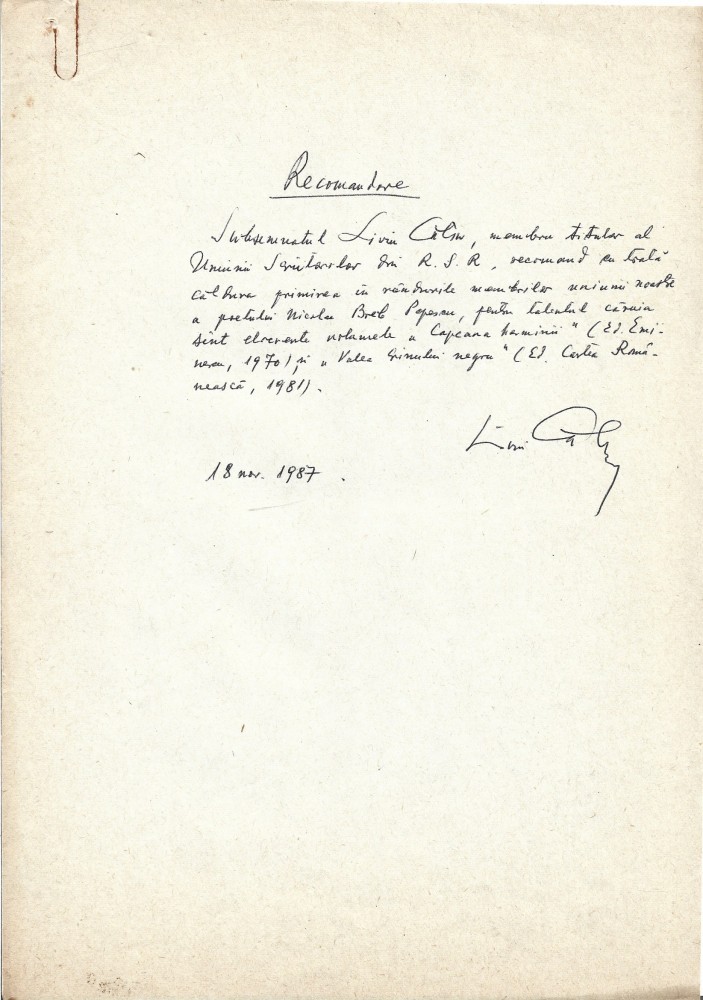 Recomandare
Subsemnatul Liviu Călin, membru titular al
Uniunii Scriitorilor din R.S.R, recomand cu toată
căldura primirea în rândurile membrilor uniunii noastre
a poetului Nicolae Breb Popescu, pentru talentul căruia
sînt elocvente volumele „Capcana luminii" (Ed. Emi-
nescu, 1970) și „Valea crinului negru" (Ed. Cartea Româ-
nească, 1981).
Liviu Călin
18 nov. 1987.